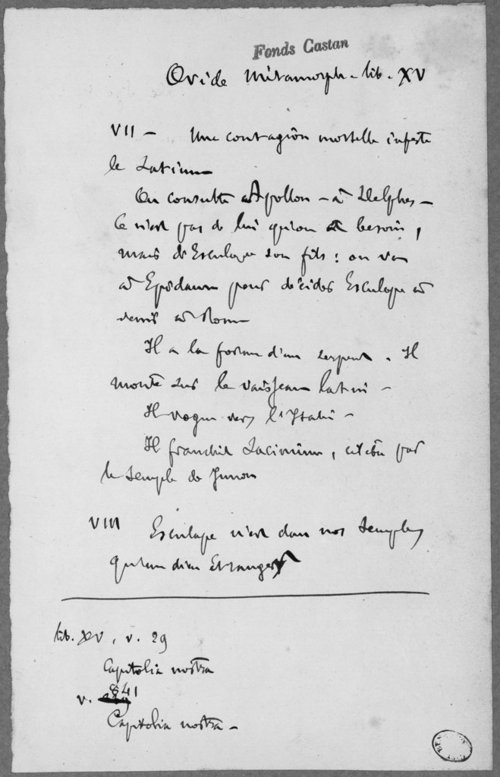 Fonds Castan
Ovide Métamorph. lib. XV
VII — Une contagion mortelle infeste
le Latium
On consulte Apollon — à Delphes —
Ce n'est pas de lui qu'on a besoin,
mais d'Esculape son fils : on va
à Epidaure pour décider Esculape à
venir à Rome
Il a la forme d'un serpent. Il
monte sur le vaisseau latin —
Il vogue vers l'Italie —
Il franchit Lacinium, célèbre par
le temple de Junon
VIII Esculape n'est dans nos temples
qu'un dieu Etranger
lib. XV, v. 29
Capitolia nostra
v. 841
Capitolia nostra —